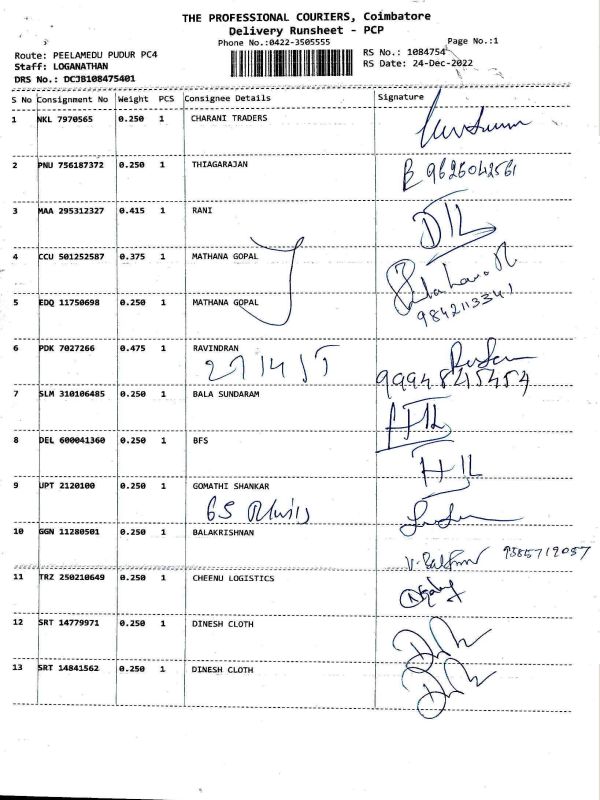 THE PROFESSIONAL COURIERS, Coimbatore
Delivery Runsheet - PCP
Phone No.:0422-3505555
Page No.:1
Route: PEELAMEDU PUDUR PC4
RS No.: 1084754
Staff: LOGANATHAN
RS Date: 24-Dec-2022
DRS No.: DCJB108475401
S No Consignment No Weight PCS Consignee Details Signature
1 NKL 7970565 0.250 1 CHARANI TRADERS
2 PNU 756187372 0.250 1 THIAGARAJAN
3 MAA 295312327 0.415 1 RANI
4 CCU 501252587 0.375 1 MATHANA GOPAL
9842113341
5 EDQ 11750698 0.250 1 MATHANA GOPAL
6 PDK 7027266 0.475 1 RAVINDRAN
9994845454
7 SLM 310106485 0.250 1 BALA SUNDARAM
8 DEL 600041360 0.250 1 BFS
9 UPT 2120100 0.250 1 GOMATHI SHANKAR
10 GGN 11280501 0.250 1 BALAKRISHNAN
11 TRZ 250210649 0.250 1 CHEENU LOGISTICS
12 SRT 14779971 0.250 1 DINESH CLOTH
13 SRT 14841562 0.250 1 DINESH CLOTH